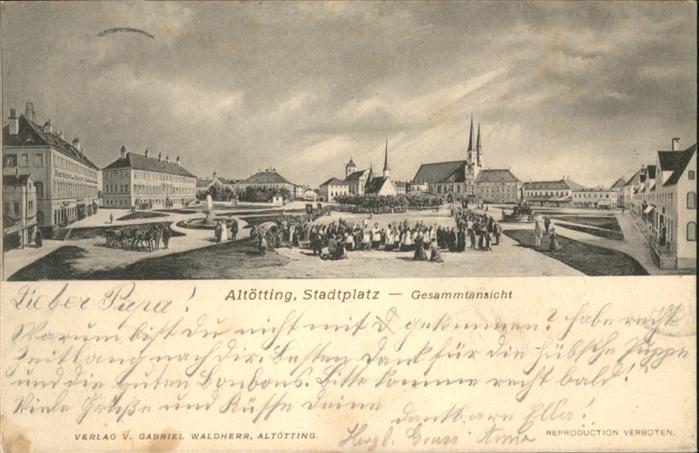 Altötting, Stadtplatz — Gesammtansicht
Lieber Papa!
Warum bist du nicht mit gekommen? habe recht
Zeitlang nach dir. besten Dank für die hübsche Puppe
und die guten Bonbons. Bitte komme recht bald!
Viele Grüße und Küsse deine
dankbare Ella!
Herzl. Gruss Anna
VERLAG V. GABRIEL WALDHERR, ALTÖTTING.
REPRODUCTION VERBOTEN.